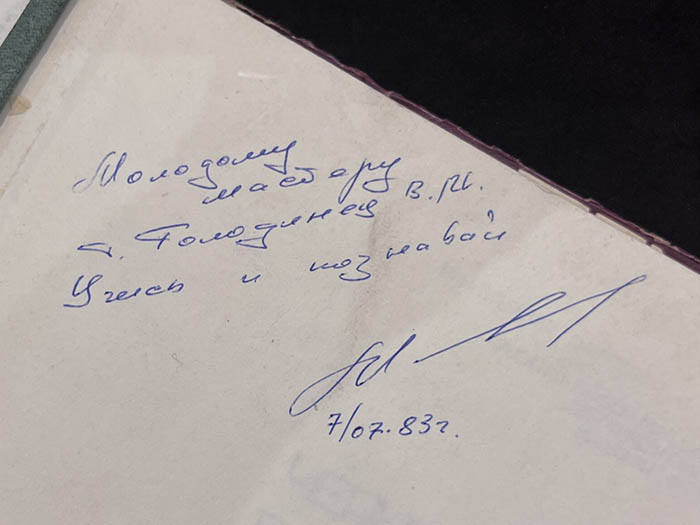 Молодому
мастеру
т. Голодинец В.М.
Учись и познавай
7/07.83г.